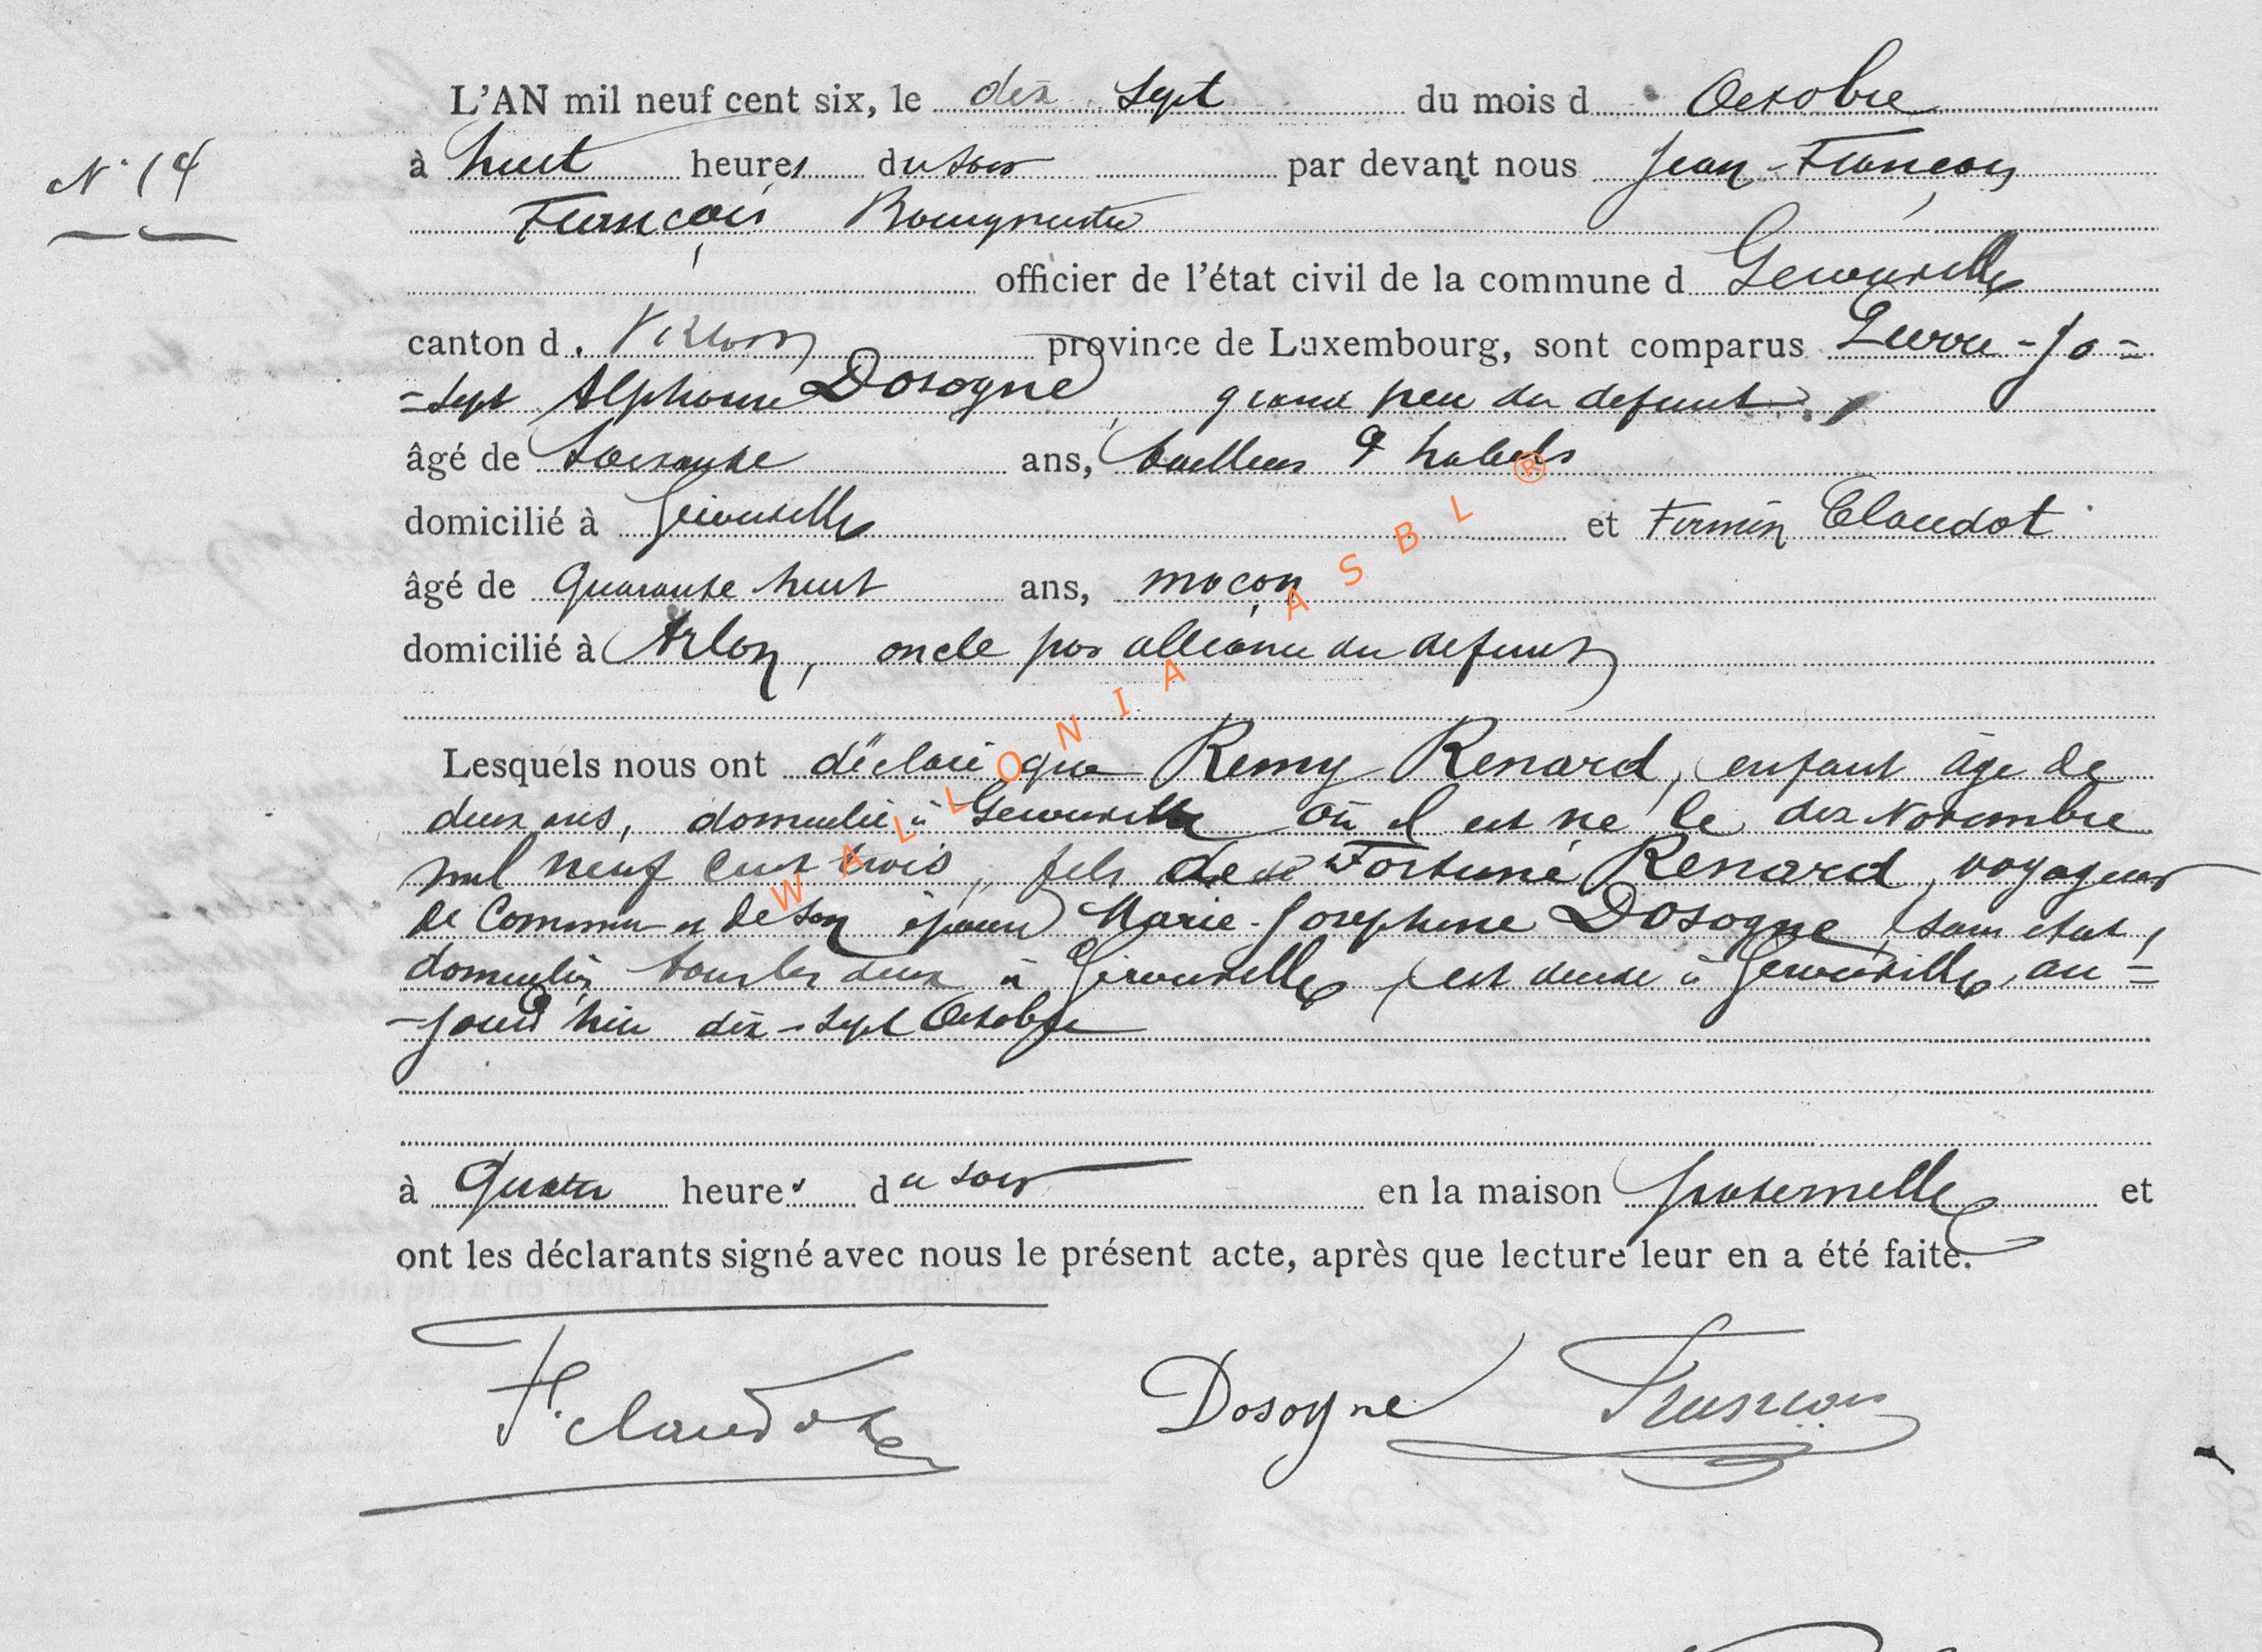 L'AN mil neuf cent six, le dix sept du mois d Octobre
N° 14
à huit heures du soir par devant nous Jean-François
François Bourgmestre
officier de l'état civil de la commune d Gérouville
canton d. Virton province de Luxembourg, sont comparus Pierre-Jo=
=seph Alphonse Dosogne, grand père du défunt,
âgé de soixante ans, tailleur d'habits
domicilié à Gérouville et Firmin Claudot
âgé de quarante huit ans, maçon
domicilié à Arlon, oncle par alliance du défunt
Lesquels nous ont déclaré que Remy Renard, enfant âgé de
deux ans, domicilié à Gérouville où il est né le dix Novembre
mil neuf cent trois, fils de Fortuné Renard, voyageur
de Commerce et de son épouse Marie-Josephine Dosogne, sans état,
domiciliés tous les deux à Gérouville, est décédé à Gérouville, au=
-jourd'hui dix-sept Octobre
à quatre heures du soir en la maison paternelle et
ont les déclarants signé avec nous le présent acte, après que lecture leur en a été faite.
F. Claudot Dosogne François
WALLONIA ASBL ®